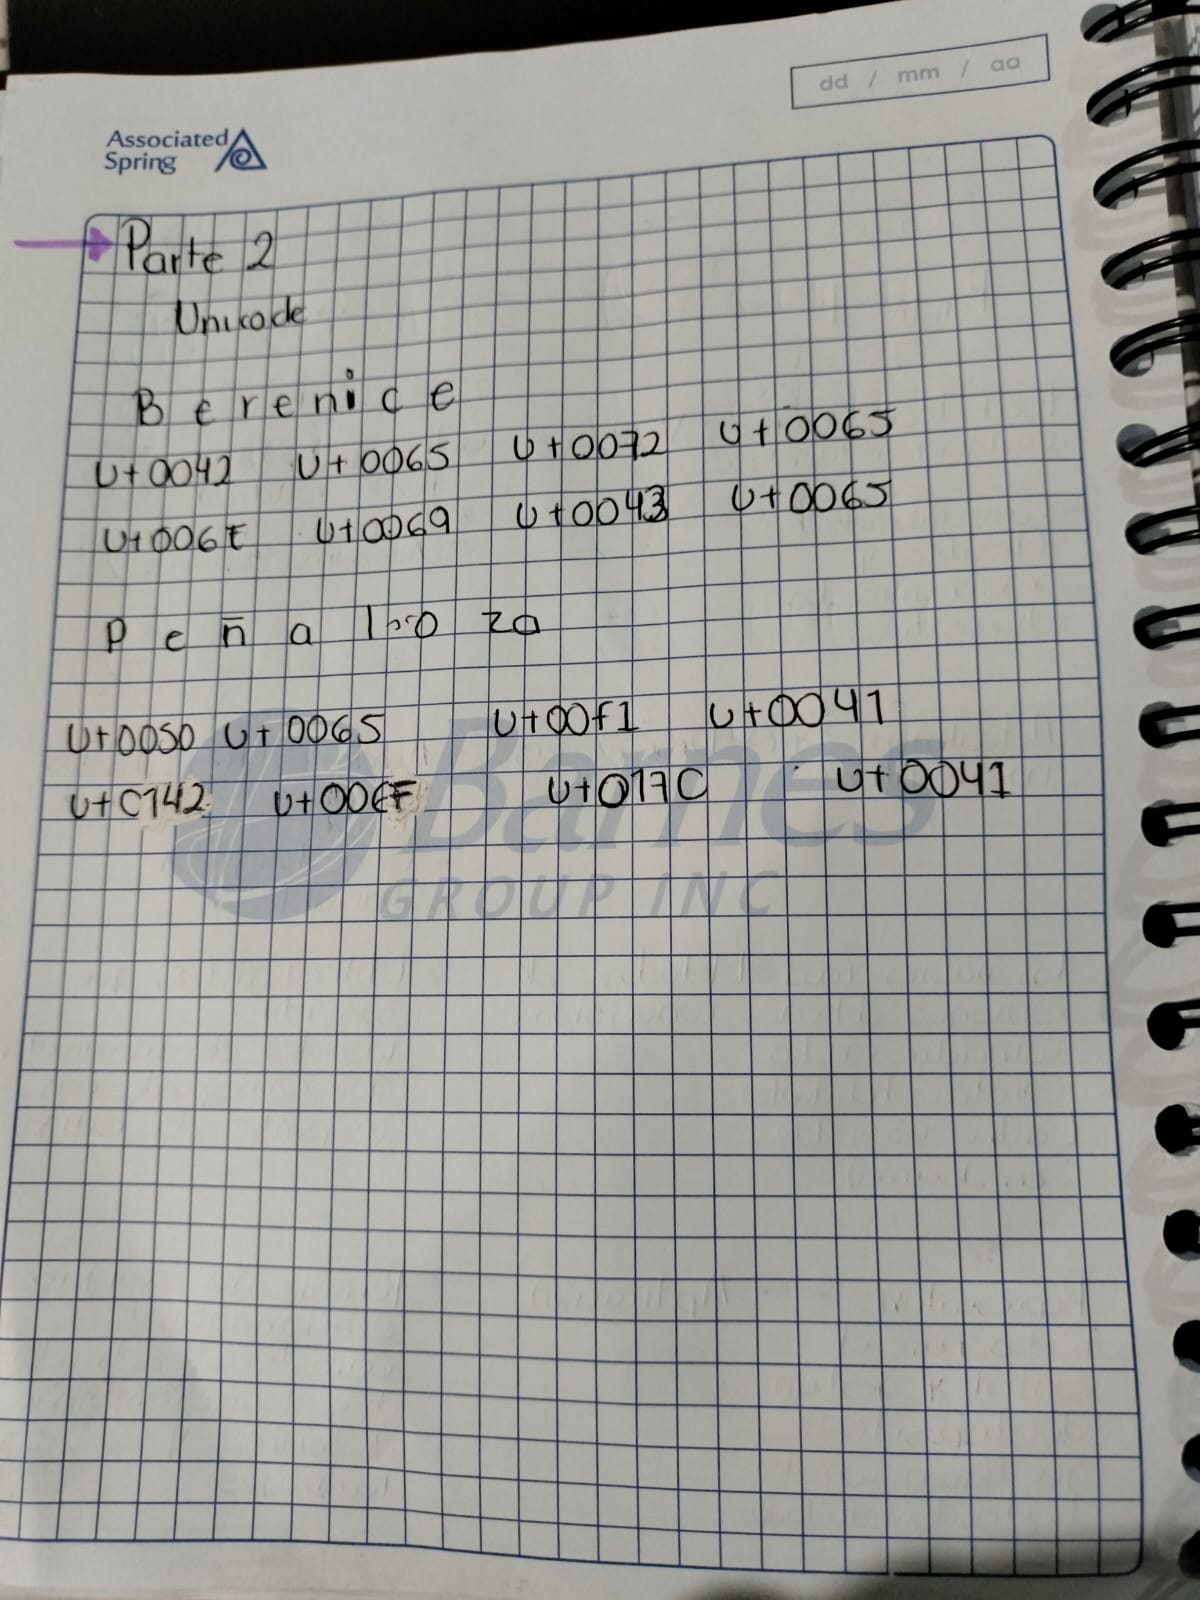 dd / mm / aa
Associated
Spring
Parte 2
Unicode
B e r e n i c e
U+0042 U+0065 U+0072 U+0065
U+006E U+0069 U+0043 U+0065
P e ñ a l o z a
U+0050 U+0065 U+00f1 U+0041
U+0142 U+006F U+017C U+0041
Barnes
GROUP INC